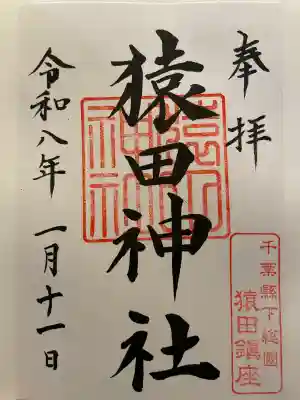 奉拝
猿田神社
令和八年 一月十一日
千葉縣下総國
猿田鎮座